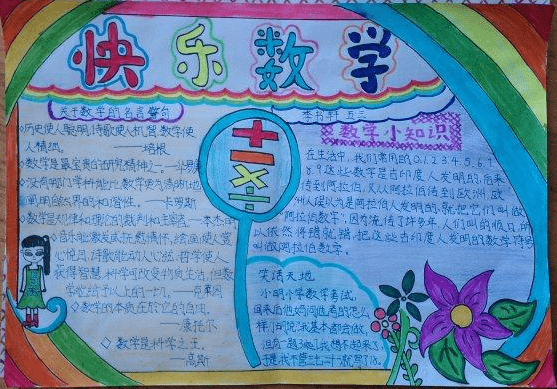 快乐数学
关于数学的名言警句
李书轩 五三
◇历史使人聪明,诗歌使人机智,数学使
人精细。 ——培根
◇数学是最宝贵的研究精神之一。—华罗庚
◇没有哪门学科能比数学更为清晰地
阐明自然界的和谐性。——卡罗斯
◇数学是规律和理论的裁判和主宰者—本杰明
◇音乐能激发或抚慰情怀,绘画使人赏
心悦目,诗歌能动人心弦,哲学使人
获得智慧,科学可改变物质生活,但数
学能给予以上的一切。——克莱因
◇数学的本质在于它的自由。
——康托尔
◇数学是科学之王。
——高斯
+ − × ÷
数学小知识
在生活中,我们常用的0.1.2.3.4.5.6.7
8.9这些数字是古印度人发明的,后来
传到阿拉伯,又从阿拉伯传到欧洲,欧
洲人误以为是阿拉伯人发明的,就把它们叫做
“阿拉伯数字”,因为流传了许多年,人们叫的顺口,所
以依然将错就错,把这些古印度人发明的数字符号
叫做阿拉伯数字。
笑话天地
小明小学数学考试,
回来后他妈问他考的怎么
样?他说:我基本都会做,
但有一题3乘7我想不起来了,
于是我不管三七二十一就写了18。